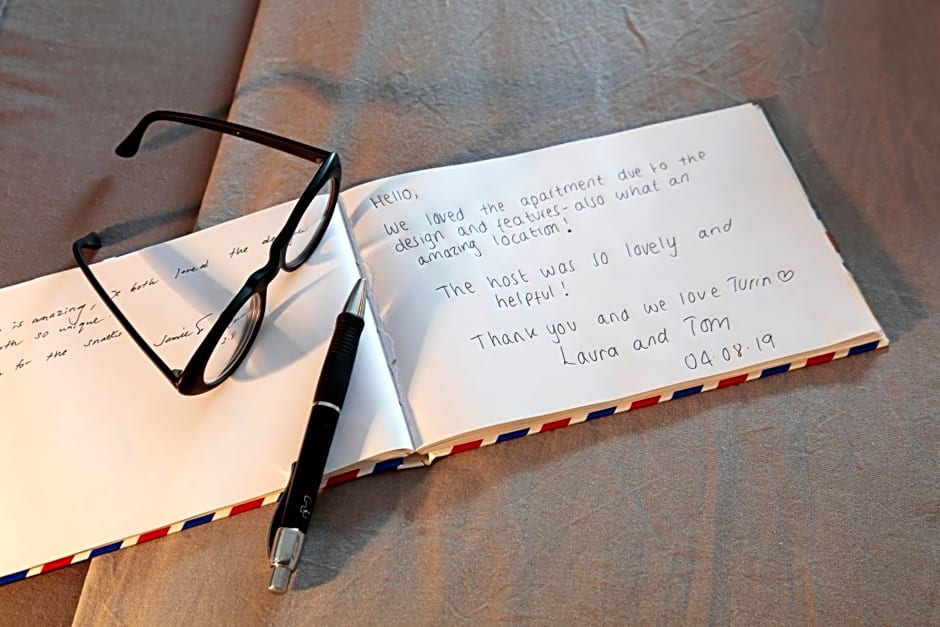 loved the
is amazing,
both
so unique.
for the snacks
Jamie &
Hello,
We loved the apartment due to the
design and features - also what an
amazing location!
The host was so lovely and
helpful!
Thank you and we love Turin ♡
Laura and Tom
04.08.19